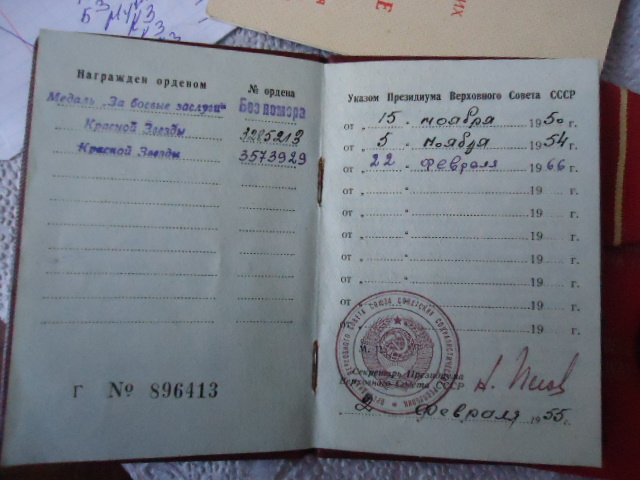 Награжден орденом
№ ордена
Медаль „За боевые заслуги"
Без номера
Красной Звезды
3285213
Красной Звезды
3573929
Г № 896413
Указом Президиума Верховного Совета СССР
от „ 15 " ноября 1950 г.
от „ 5 " ноября 1954 г.
от „ 22 " февраля 1966 г.
от „ " 19 г.
от „ " 19 г.
от „ " 19 г.
от „ " 19 г.
от „ " 19 г.
от „ " 19 г.
от „ " 19 г.
М. П.
Секретарь Президиума
Верховного Совета СССР
февраля 1955 г.